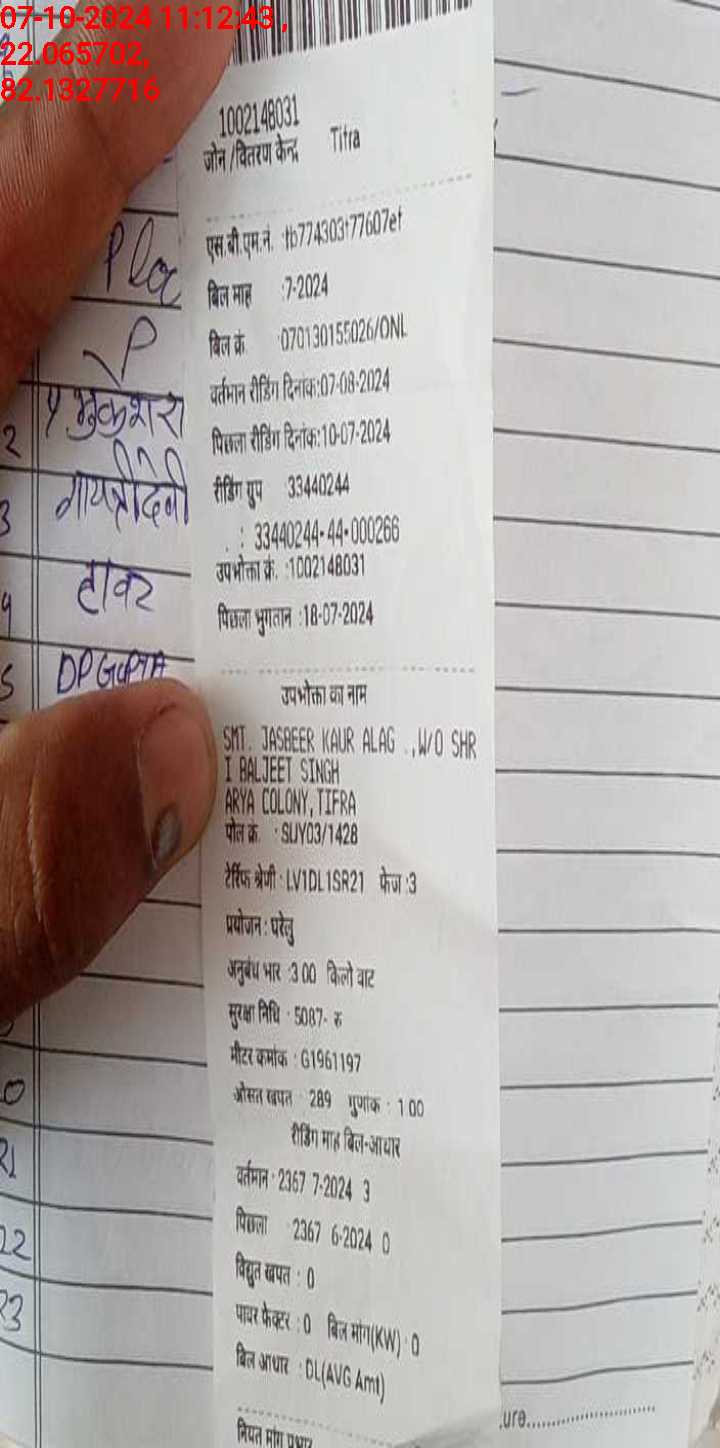 07-10-2024 11:12:43 ,
22.065702,
82.1327716
1002148031
जोन /वितरण केन्द्र Tifra
एस.बी.एम.नं. :fb774303f77607ef
बिल माह :7-2024
बिल क्रं :070130155026/ONL
वर्तमान रीडिंग दिनांक:07-08-2024
पिछला रीडिंग दिनांक:10-07-2024
रीडिंग ग्रुप 33440244
: 33440244-44-000266
उपभोक्ता क्रं. :1002148031
पिछला भुगतान :18-07-2024
उपभोक्ता का नाम
SMT. JASBEER KAUR ALAG .,W/O SHR
I BALJEET SINGH
ARYA COLONY,TIFRA
पोल क्रं. : SUY03/1428
टेरिफ श्रेणी : LV1DL1SR21 फेज :3
प्रयोजन : घरेलु
अनुबंध भार :3.00 किलो वाट
सुरक्षा निधि : 5087- रु
मीटर कमांक : G1961197
औसत खपत : 289 गुणांक : 1.00
रीडिंग माह बिल-आधार
वर्तमान : 2367 7-2024 3
पिछला 2367 6-2024 0
विद्युत खपत : 0
पावर फैक्टर : 0 बिल मांग(KW) : 0
बिल आधार : DL(AVG Amt)
नियत मांग प्रभार
Ploc
P
2 मुकेश
3 गायत्रीदेवी
4
5 DP GUPTA
21
22
23
ure..............................